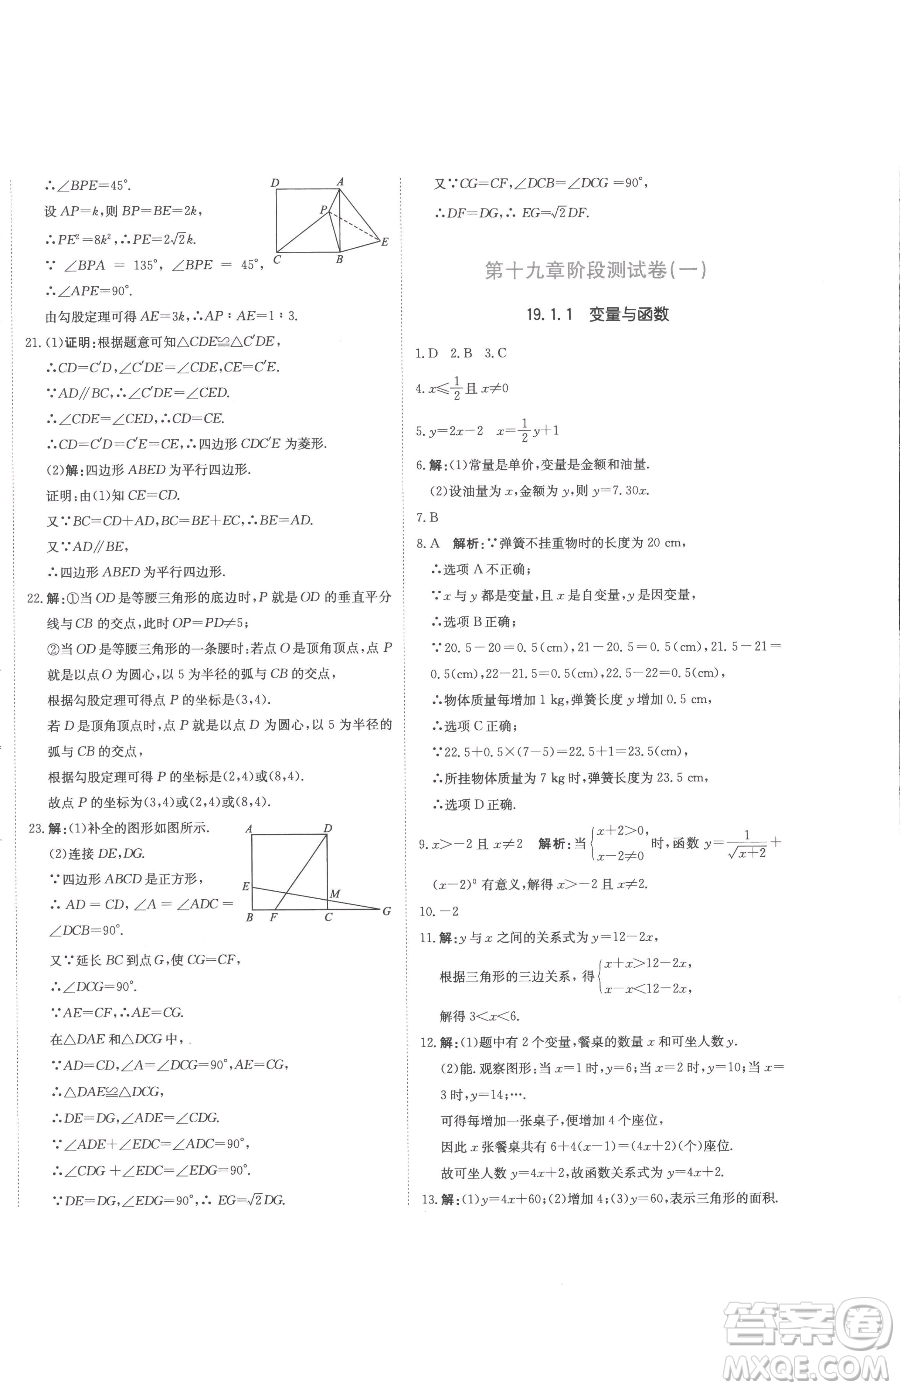 ∴∠BPE=45°.
设 AP=k,则 BP=BE=2k,
∴PE²=8k²,∴PE=2√2k.
∵ ∠BPA = 135°,∠BPE = 45°,
∴∠APE=90°.
由勾股定理可得 AE=3k,∴AP∶AE=1∶3.
D A P E C B
21.(1)证明:根据题意可知△CDE≌△C′DE,
∴CD=C′D,∠C′DE=∠CDE,CE=C′E.
∵AD∥BC,∴∠C′DE=∠CED,
∴∠CDE=∠CED,∴CD=CE.
∴CD=C′D=C′E=CE,∴四边形 CDC′E 为菱形.
(2)解:四边形 ABED 为平行四边形.
证明:由(1)知 CE=CD.
又∵BC=CD+AD,BC=BE+EC,∴BE=AD.
又∵AD∥BE,
∴四边形 ABED 为平行四边形.
22.解:①当 OD 是等腰三角形的底边时,P 就是 OD 的垂直平分
线与 CB 的交点,此时 OP=PD≠5;
②当 OD 是等腰三角形的一条腰时:若点 O 是顶角顶点,点 P
就是以点 O 为圆心,以 5 为半径的弧与 CB 的交点,
根据勾股定理可得点 P 的坐标为(3,4).
若 D 是顶角顶点时,点 P 就是以点 D 为圆心,以 5 为半径的
弧与 CB 的交点,
根据勾股定理可得 P 的坐标为(2,4)或(8,4).
故点 P 的坐标为(3,4)或(2,4)或(8,4).
23.解:(1)补全的图形如图所示.
(2)连接 DE,DG.
∵四边形 ABCD 是正方形,
∴ AD = CD,∠A = ∠ADC =
∠DCB=90°.
又∵延长 BC 到点 G,使 CG=CF,
∴∠DCG=90°.
∵AE=CF,∴AE=CG.
在△DAE 和△DCG 中,
∵AD=CD,∠A=∠DCG=90°,AE=CG,
∴△DAE≌△DCG.
∴DE=DG,∠ADE=∠CDG.
∵∠ADE+∠EDC=∠ADC=90°,
∴∠CDG+∠EDC=∠EDG=90°.
∵DE=DG,∠EDG=90°,∴ EG=√2DG.
A D E M B F C G
又∵CG=CF,∠DCB=∠DCG=90°,
∴DF=DG,∴ EG=√2DF.
第十九章阶段测试卷(一)
19.1.1 变量与函数
1.D 2.B 3.C
4.x≤1/2 且 x≠0
5.y=2x-2 x=1/2y+1
6.解:(1)常量是单价,变量是金额和油量.
(2)设油量为 x,金额为 y,则 y=7.30x.
7.B
8.A 解析:∵弹簧不挂重物时的长度为 20 cm,
∴选项 A 不正确;
∵x 与 y 都是变量,且 x 是自变量,y 是因变量,
∴选项 B 正确;
∵20.5-20=0.5(cm),21-20.5=0.5(cm),21.5-21=
0.5(cm),22-21.5=0.5(cm),22.5-22=0.5(cm),
∴物体质量每增加 1 kg,弹簧长度增加 0.5 cm,
∴选项 C 正确;
∵22.5+0.5×(7-5)=22.5+1=23.5(cm),
∴所挂物体质量为 7 kg 时,弹簧长度为 23.5 cm,
∴选项 D 正确.
9.x>-2 且 x≠2 解析:当{x+2>0, x-2≠0 时,函数 y=1/√(x+2)+
(x-2)⁰ 有意义,解得 x>-2 且 x≠2.
10.-2
11.解:y 与 x 之间的关系式为 y=12-2x,
根据三角形的三边关系,得{x+x>12-2x, x-x<12-2x,
解得 3<x<6.
12.解:(1)题中有 2 个变量,餐桌的数量 x 和可坐人数 y.
(2)能.观察图形:当 x=1 时,y=6;当 x=2 时,y=10;当 x=
3 时,y=14;….
可得每增加一张桌子,可增加 4 个座位,
因此 x 张餐桌共有 6+4(x-1)=(4x+2)(个)座位.
故可坐人数 y=4x+2,故函数关系式为 y=4x+2.
13.解:(1)y=4x+60;(2)增加 4;(3)y=60,表示三角形的面积.
答案圈
MXQE.COM